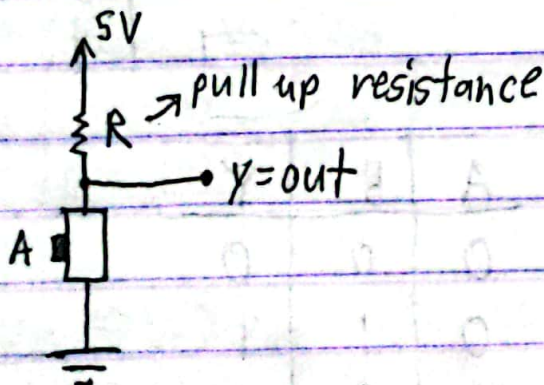 5V
R → pull up resistance
y=out
A